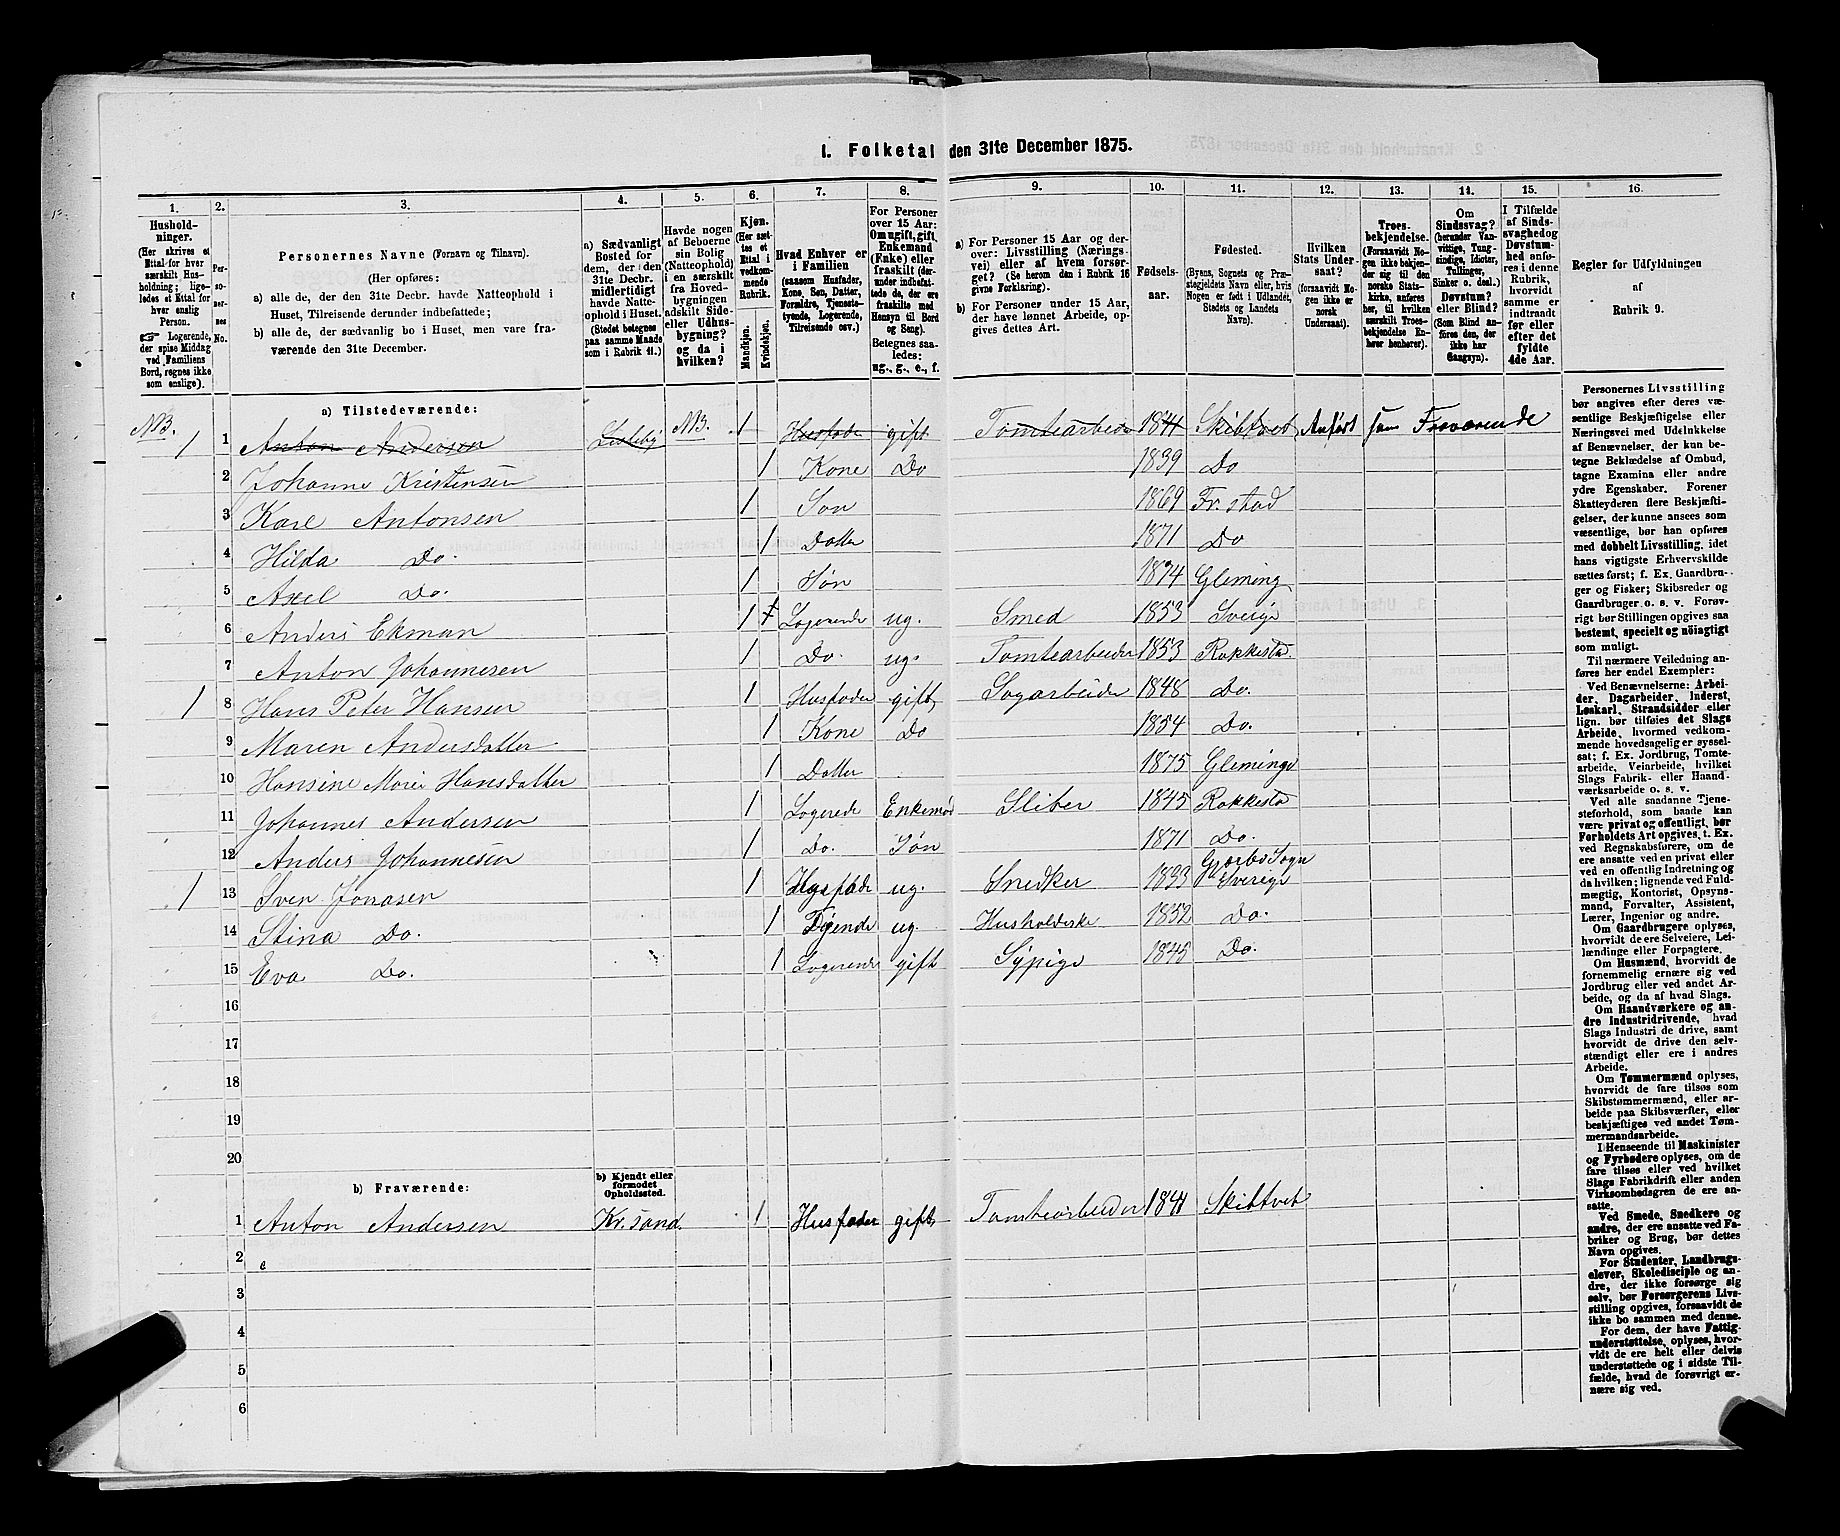 1. Folketal den 31te December 1875.
1. 2. 3. 4. 5. 6. 7. 8. 9. 10. 11. 12. 13. 14. 15. 16.
Hushold-
ninger.
(Her skrives et
Ettal for hver
særskilt Hus-
holdning; lige-
ledes et Ettal for
hver enslig
Person.
☞ Logerende,
der spise Middag
ved Familiens
Bord, regnes ikke
som enslige).
Per-
so-
ner-
nes
No.
Personernes Navne (Fornavn og Tilnavn).
(Her opføres:
a) alle de, der den 31te Decbr. havde Natteophold i
Huset, Tilreisende derunder indbefattede;
b) alle de, der sædvanlig bo i Huset, men vare fra-
værende den 31te December.
a) Sædvanligt
Bosted for
dem, der den
31te Decbr.
midlertidigt
havde Natte-
ophold i Huset.
(Stedet betegnes
paa samme Maade
som i Rubrik 11.)
Havde nogen
af Beboerne
sin Bolig
(Natteophold)
i en særskilt
fra Hoved-
bygningen
adskilt Side-
eller Udhus-
bygning?
og da i
hvilken?
Kjøn.
(Her sæt-
tes et
Ettal i
vedkom-
mende
Rubrik.
Mandkjøn.
Kvindekjøn.
Hvad Enhver er
i Familien
(saasom Husfader,
Kone, Søn, Datter,
Forældre, Tjeneste-
tyende, Logerende,
Tilreisende osv.)
For Personer
over 15 Aar:
Om ugift, gift,
Enkemand
(Enke) eller
fraskilt (der-
under indbefat-
tede de, der ere
fraskilte med
Hensyn til Bord
og Seng).
Betegnes saa-
ledes:
ug., g., e., f.
a) For Personer 15 Aar og der-
over: Livsstilling (Nærings-
vei) eller af hvem forsør-
get? (Se herom den i Rubrik 16
givne Forklaring).
b) For Personer under 15 Aar,
der have lønnet Arbeide, op-
gives dettes Art.
Fødsels-
aar.
Fødested.
(Byens, Sognets og Præ-
stegjeldets Navn eller, hvis
Nogen er født i Udlandet,
Stedets og Landets
Navn).
Hvilken
Stats Under-
saat?
(forsaavidt No-
gen ikke er
norsk
Undersaat).
Troes-
bekjendelse.
(Forsaavidt No-
gen ikke bekjen-
der sig til den
norske Stats-
kirke, anføres
her, til hvilken
særskilt Troes-
bekjendelse En-
hver henhører).
Om
Sindssvag?
(herunder Van-
vittige, Tung-
sindige, Idioter,
Tullinger,
Sinker o. desl.)
Døvstum?
eller Blind?
(Som Blind an-
føres den, der
ikke har
Gangsyn).
I Tilfælde
af Sinds-
svaghed og
Døvstum-
hed anfø-
res i denne
Rubrik,
hvorvidt
samme er
indtraadt
før eller
efter det
fyldte
4de Aar.
Regler for Udfyldningen
af
Rubrik 9.
a) Tilstedeværende:
NB. 1 1 Anton Andersen Lisleby NB. 1 Husfader gift Tomtearbeider 1841 Skibtvet Anført som Fraværende
2 Johanne Kristensen 1 Kone Do 1839 Do
3 Karl Antonsen 1 Søn 1869 Fr. stad
4 Hilda Do. 1 Datter 1871 Do
5 Axel Do. 1 Søn 1874 Gleming
6 Anders Ekman 1 1 Logerende ug. Smed 1853 Sverige
7 Anton Johannesen 1 Do. ug. Tomtearbeider 1853 Rakkestad
1 8 Hans Peter Hansen 1 Husfader gift Sagarbeider 1848 Do.
9 Maren Andersdatter 1 Kone Do 1854 Do.
10 Hansine Marie Hansdatter 1 Datter 1875 Gleminge
11 Johannes Andersen 1 Logerede Enkemd Sliber 1845 Rakkesta
12 Anders Johannesen 1 Do. Søn 1871 Do.
1 13 Sven Jonasen 1 Husfade ug. Snedker 1833 Sogn Sverige
14 Stina Do. 1 Tjende ug. Husholderske 1852 Do.
15 Eva Do. 1 Logerende gift Sypige 1845 Do.
16
17
18
19
20
b) Fraværende:
b) Kjendt eller
formodet
Opholdssted.
1 Anton Andersen Kr. sand 1 Husfader gift Tomtearbeider 1841 Skibtvet
2
3
4
5
6
Personernes Livsstilling
bør angives efter deres væ-
sentlige Beskjæftigelse eller
Næringsvei med Udelukkelse
af Benævnelser, der kun be-
tegne Beklædelse af Ombud,
tagne Examina eller andre
ydre Egenskaber. Forener
Skatteyderen flere Beskjæfti-
gelser, der kunne ansees som
væsentlige, bør han opføres
med dobbelt Livsstilling, idet
hans vigtigste Erhvervskilde
sættes først; f. Ex. Gaardbru-
ger og Fisker; Skibsreder og
Gaardbruger o. s. v. Forøv-
rigt bør Stillingen opgives saa
bestemt, specielt og nöiagtigt
som muligt.
Til nærmere Veiledning an-
føres her endel Exempler:
Ved Benævnelserne: Arbei-
der, Dagarbeider, Inderst,
Løskarl, Strandsidder eller
lign. bør tilføies det Slags
Arbeide, hvormed vedkom-
mende hovedsagelig er syssel-
sat; f. Ex. Jordbrug, Tomte-
arbeide, Veiarbeide, hvilket
Slags Fabrik- eller Haand-
værksarbeide o. s. v.
Ved alle saadanne Tjene-
steforhold, som baade kan
være privat og offentligt, bør
Forholdets Art opgives, t. Ex.
ved Regnskabsførere, om de
ere ansatte ved en privat eller
ved en offentlig Indretning og
da hvilken; lignende ved Fuld-
mægtig, Kontorist, Opsyns-
mand, Forvalter, Assistent,
Lærer, Ingeniør og andre.
Om Gaardbrugere oplyses,
hvorvidt de ere Selveiere, Lei-
lændinge eller Forpagtere.
Om Husmænd, hvorvidt de
fornemmelig ernære sig ved
Jordbrug eller ved andet Ar-
beide, og da af hvad Slags.
Om Haandværkere og an-
dre Industridrivende, hvad
Slags Industri de drive, samt
hvorvidt de drive den selv-
stændigt eller ere i andres
Arbeide.
Om Tømmermænd oplyses,
hvorvidt de fare tilsøs som
Skibstømmermænd, eller ar-
beide paa Skibsværfter, eller
beskjæftiges ved andet Tøm-
mermandsarbeide.
I Henseende til Maskinister
og Fyrbødere oplyses, om de
fare tilsøs eller ved hvilket
Slags Fabrikdrift eller anden
Virksomhedsgren de ere an-
satte.
Ved Smede, Snedkere og
andre, der ere ansatte ved Fa-
briker og Brug, bør dettes
Navn opgives.
For Studenter, Landbrugs-
elever, Skoledisciple og an-
dre, der ikke forsørge sig
selv, bør Forsørgerens Livs-
stilling opgives, forsaavidt de
ikke bo sammen med denne.
For dem, der have Fattig-
understøttelse, oplyses, hvor-
vidt de ere helt eller delvis
understøttede og i sidste Til-
fælde, hvad de forøvrigt er-
nære sig ved.